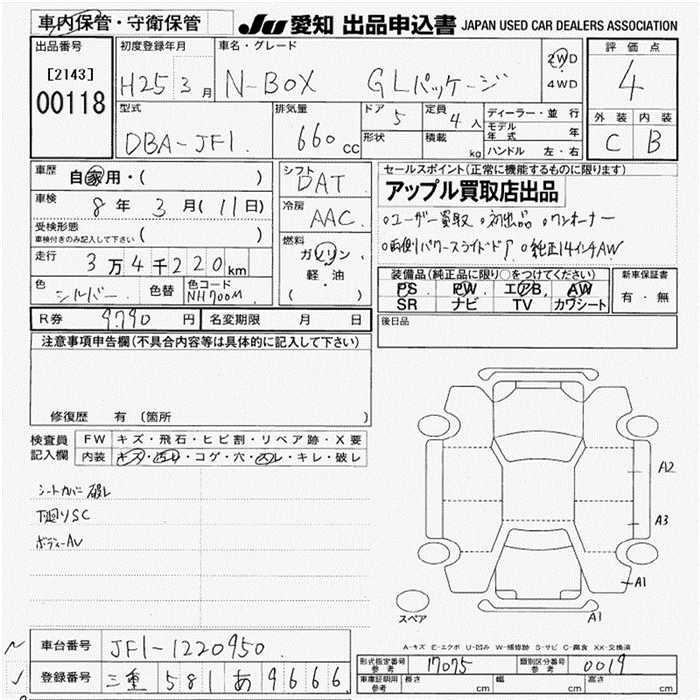 車内保管・守衛保管 JU 愛知 出品申込書 JAPAN USED CAR DEALERS ASSOCIATION
出品番号 [2143] 00118
初度登録年月 H25 3月
車名・グレード N-BOX GLパッケージ 2WD 4WD
評価点 4
外装 内装
C B
型式 DBA-JF1
排気量 660cc
ドア 5
形状
定員 4人
積載 kg
ディーラー・並行
モデル年式 年
ハンドル 左・右
車歴 自家用・( )
車検 8年 3月(11日)
受検形態 車検付きのみ記入して下さい ( )
走行 3万4千220km
色 シルバー 色替 色コード NH700M
シフト DAT
冷房 AAC
燃料 ガソリン 軽油 ( )
R券 9790円 名変期限 月 日
セールスポイント(正常に機能するものに限ります)
アップル買取店出品
○ユーザー買取 ○初出品 ○ワンオーナー
○両側パワースライドドア ○純正14インチAW
装備品(純正品に限り○をつけてください)
PS PW エアB AW
SR ナビ TV カワシート
新車保証書
有・無
後日品
注意事項申告欄(不具合内容等は具体的に記入して下さい)
修復歴 有(箇所 )
検査員記入欄
FW キズ・飛石・ヒビ割・リペア跡・X要
内装 キズ・汚れ・コゲ・穴・スレ・キレ・破レ
シートカバー破レ
下廻りSC
ボディーAU
A2
A3
A1
A1
スペア
A-キズ E-エクボ U-凹み W-補修跡 S-サビ C-腐食 XX-交換済
車台番号 JF1-1220950
登録番号 三重 581 あ 9666
型式指定番号 参考 17075 類別区分番号 参考 0019
車庫証明用 参考 長さ cm 幅 cm 高さ cm